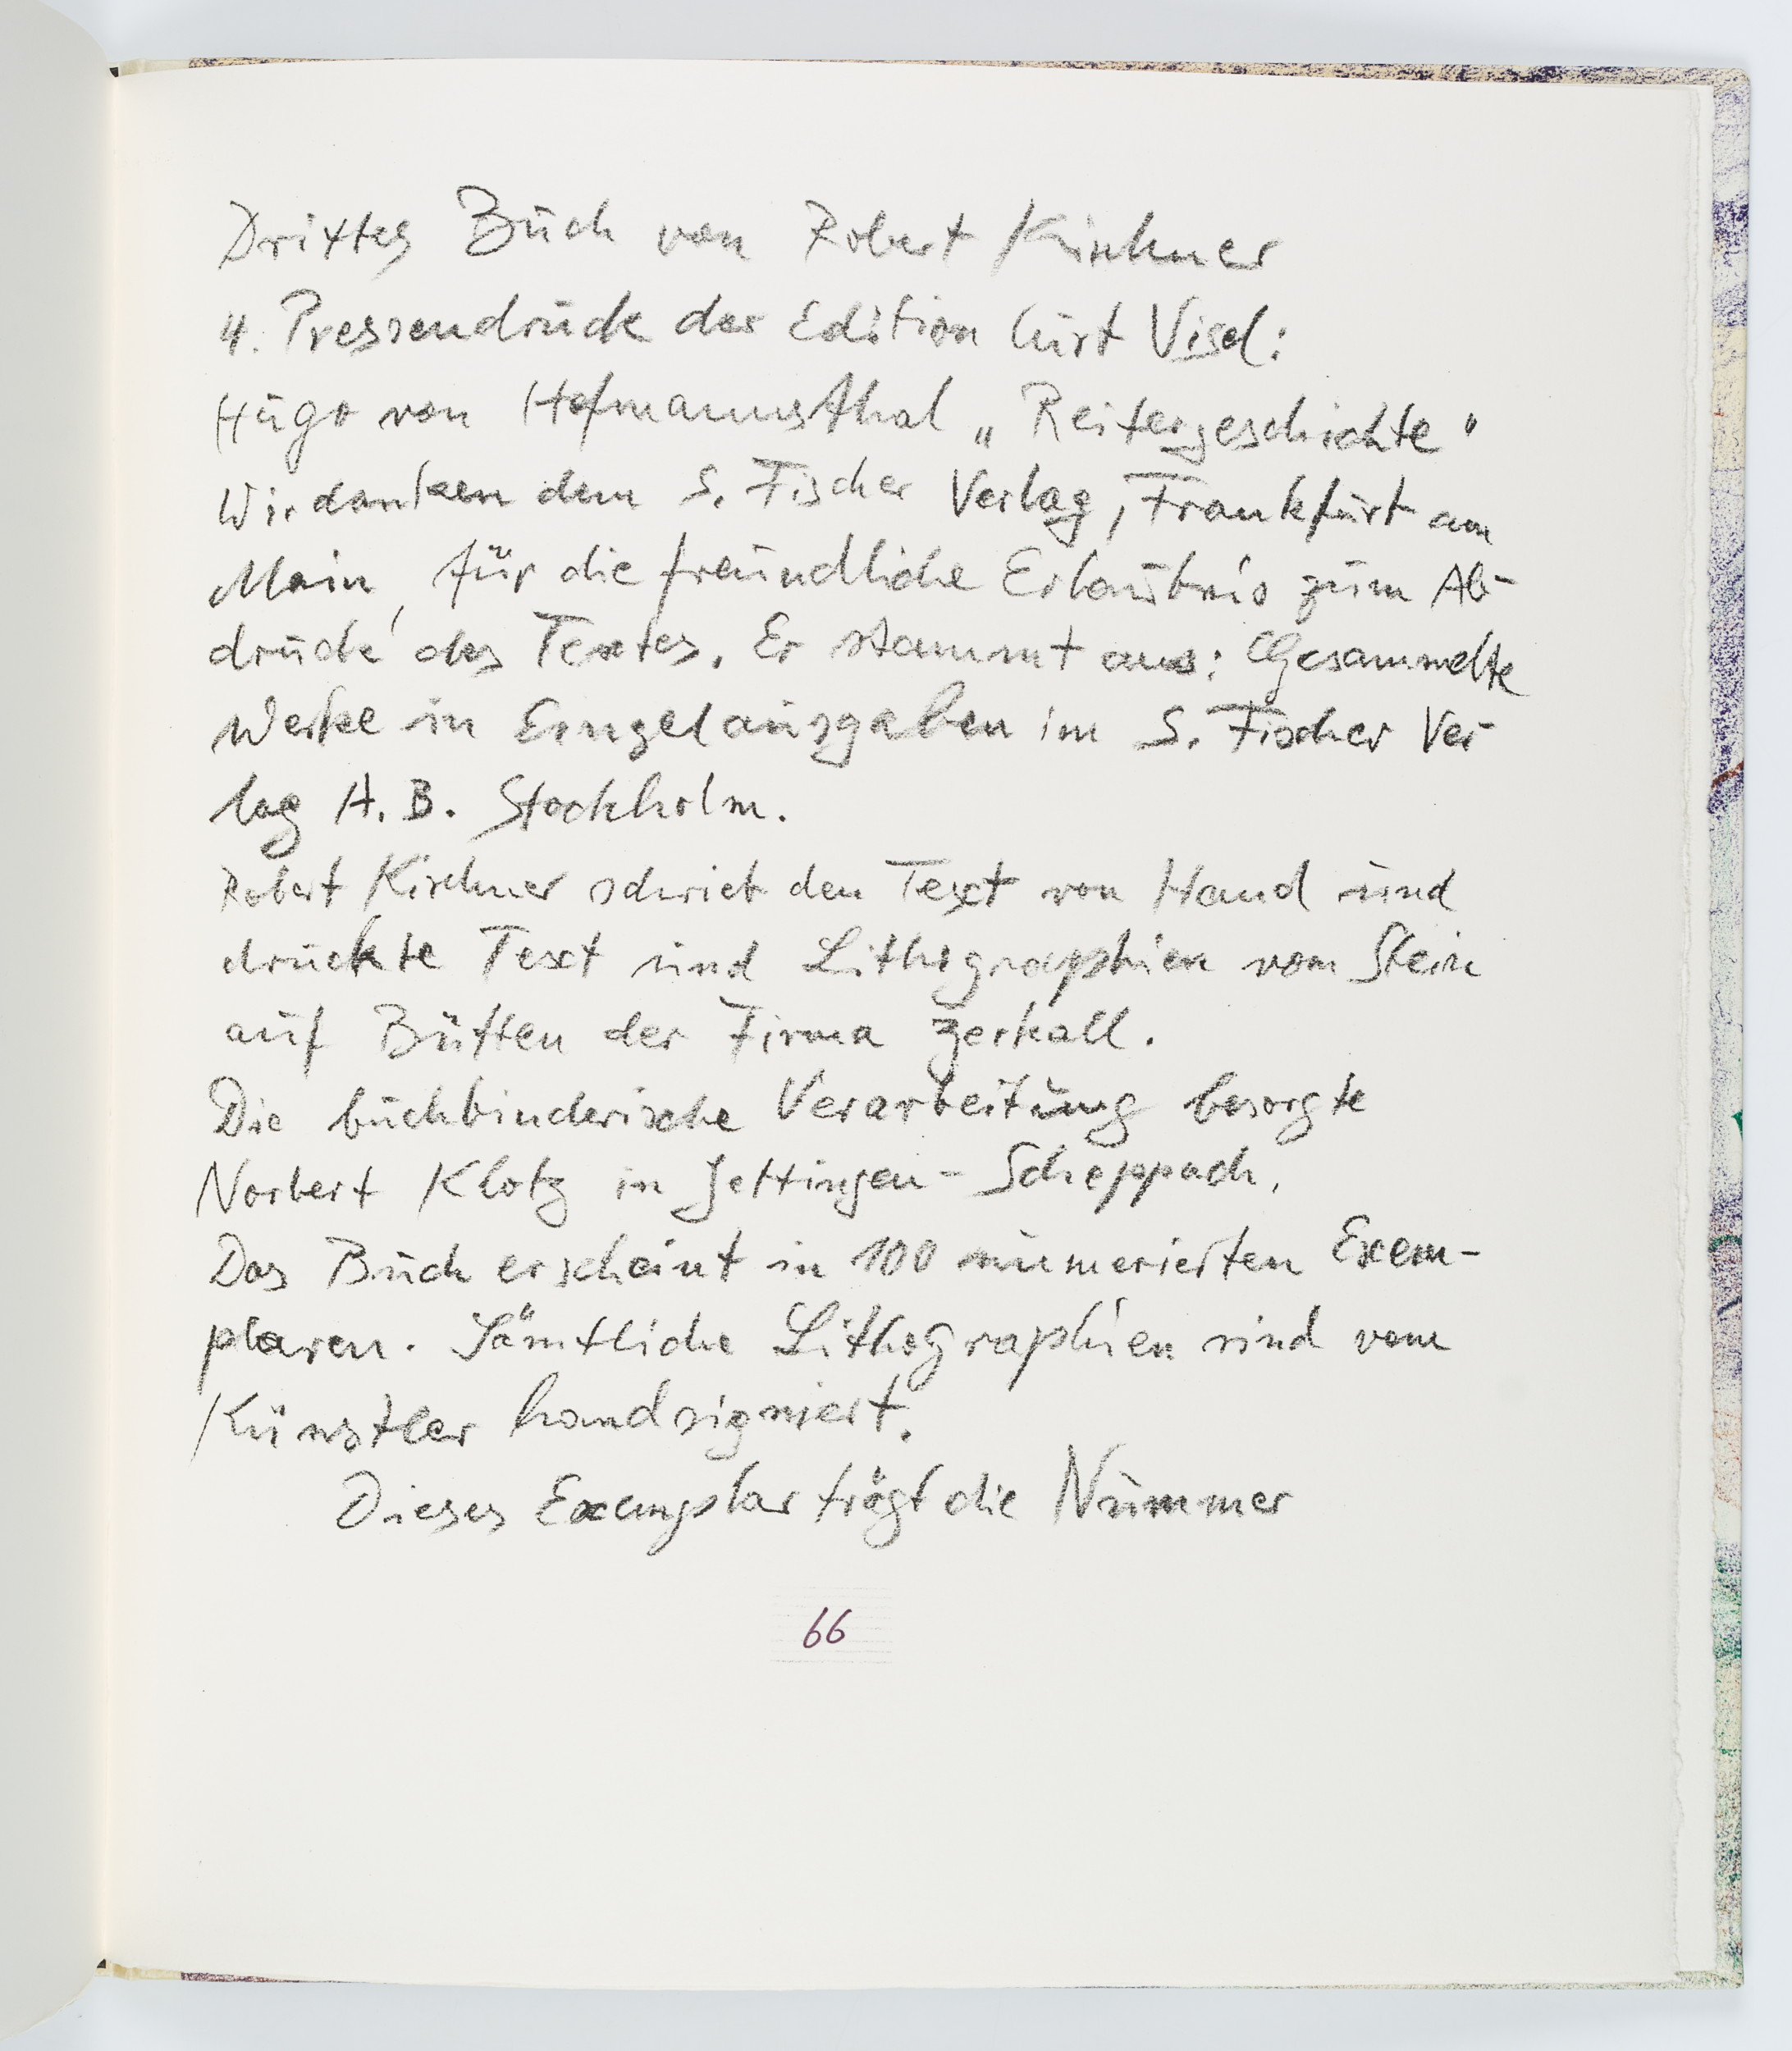 Drittes Buch von Robert Kirchner
4. Pressendruck der Edition Curt Visel:
Hugo von Hofmannsthal „Reitergeschichte"
Wir danken dem S. Fischer Verlag, Frankfurt am
Main, für die freundliche Erlaubnis zum Ab-
druck des Textes. Er stammt aus: Gesammelte
Werke in Einzelausgaben im S. Fischer Ver-
lag A. B. Stockholm.
Robert Kirchner schrieb den Text von Hand und
druckte Text und Lithographien vom Stein
auf Bütten der Firma Zerkall.
Die buchbinderische Verarbeitung besorgte
Norbert Klotz in Jettingen-Scheppach.
Das Buch erscheint in 100 numerierten Exem-
plaren. Sämtliche Lithographien sind vom
Künstler handsigniert.
Dieses Exemplar trägt die Nummer
66